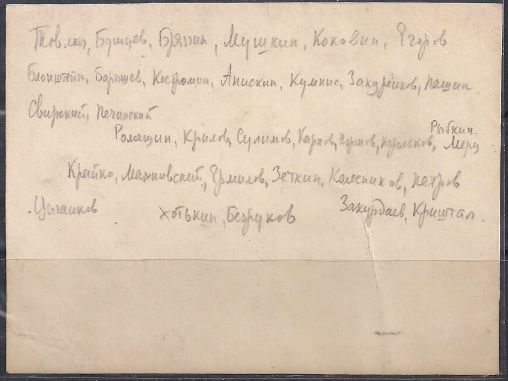 Товлич, Бунцев, Брягин, Мушкин, Коковин, Егоров
Блонштейн, Барышев, Костромин, Анискин, Кумнис, Закурёнков, Пашин
Свирский, Печинский
Ромашин, Крилов, Сулимов, Карпов, Корольков, Рыбкин, Мерц
Крайко, Махновский, Ермилов, Зеткин, Колесников, Петров
Цыганков Хотькин, Безруков Закурдаев, Криштал.